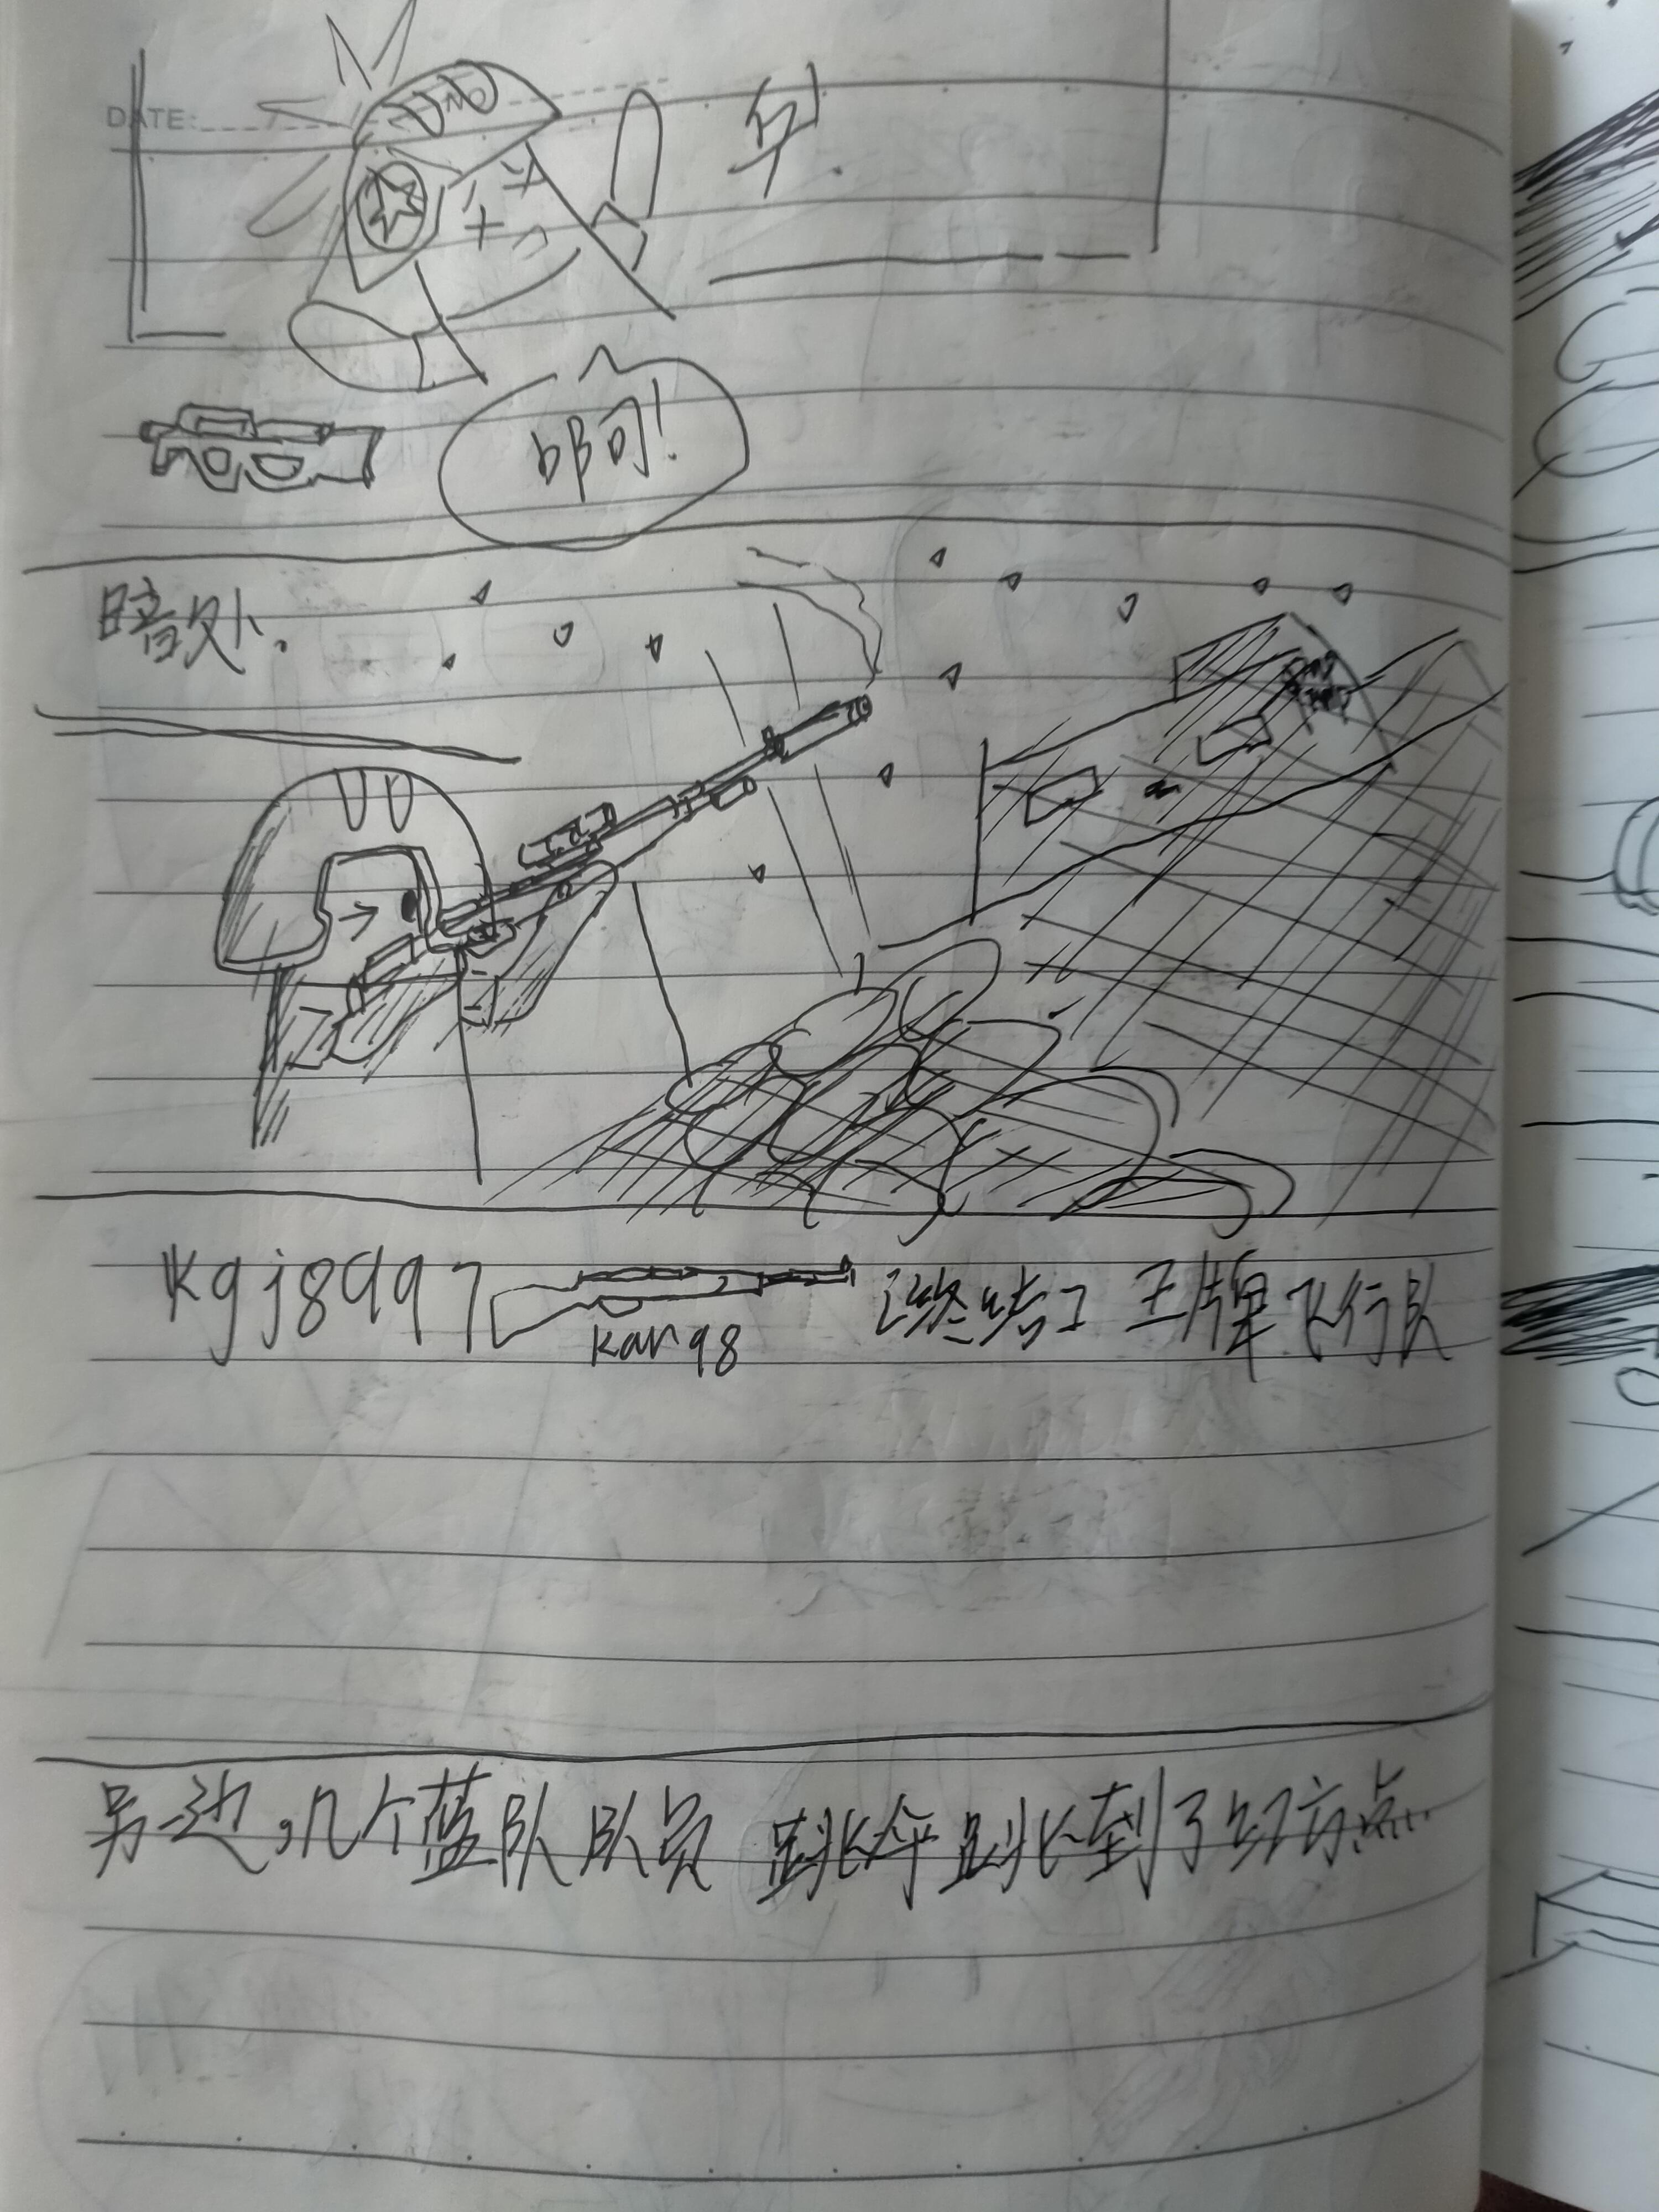 DATE:
NO
卒.
啊!
暗处.
kgj8997 kar98 终结了 王牌飞行队
另一边,几个蓝队队员 跳伞跳到了红方点...